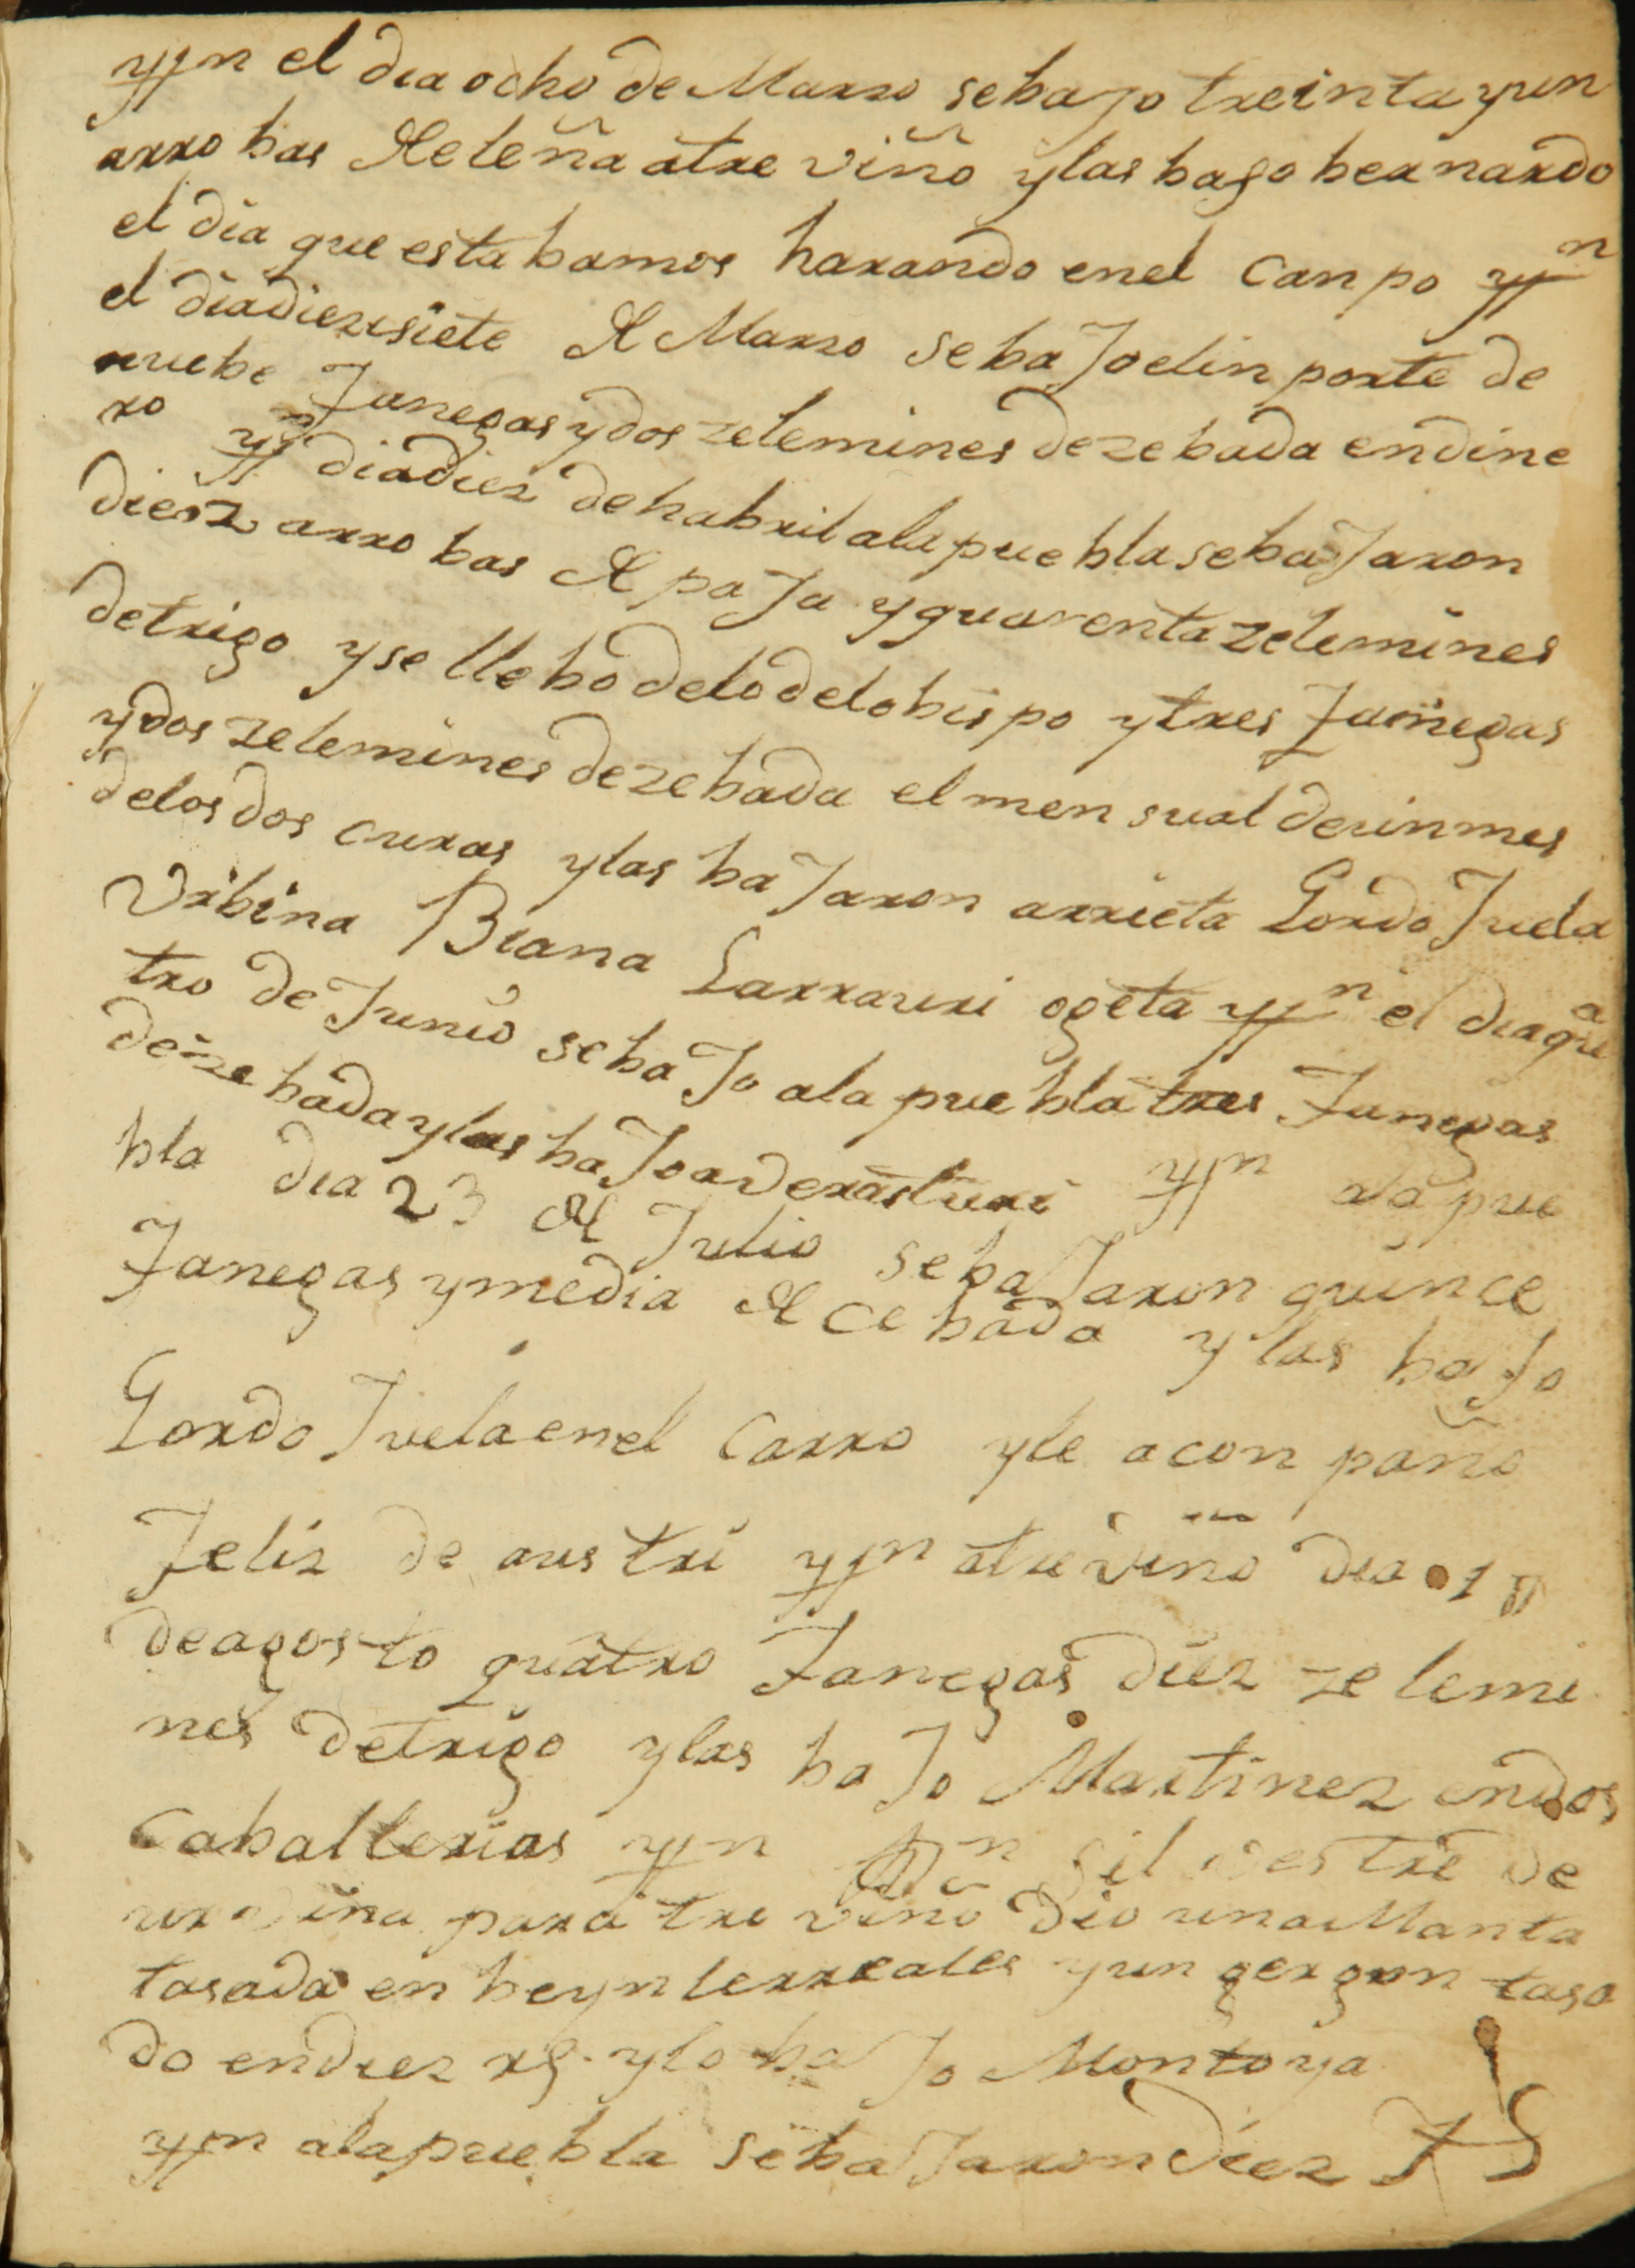 yttn el dia ocho de Marzo sebajo treinta yun
arro bas de leña atre viño ylas bajo bernardo
el dia que esta bamos harando enel canpo yttn
el diadiezisiete de Marzo seba Joelin porte de
nuebe fanegas ydos zelemines dezebada endine
ro yttn diadiez dehabril ala puebla seba Jaron
diesz arro bas de paJa yquarenta zelemines
detrigo yse llebo delo delobispo ytres fanegas
ydos zelemines dezebada el men sual deunmes
delos dos curas ylas ba Jaron arrieta Gordo Juela
Vrbina Biana Larrauri ogeta yttn el diaqua
tro de Junio seba Jo ala puebla tres fanegas
dezebadaylas ba Joaverasturi yttn ala pue
bla dia 23 de Julio seba Jaron quince
fanegas ymedia de ce bada y las ba Jo
Gordo Juela enel Carro yle acon paño
feliz de austri yttn atreviño dia 1
deagosto quatro fanegas diez ze lemi
nes detrigo ylas ba Jo Martinez endos
Caballerias yttn Dn Silvestre de
urbina para tre viño dio unaManta
tasada en beynterreales yun gergon tasa
do endiez rs. ylo ba Jo Montoya
yttn alapuebla seba Jaron diez f